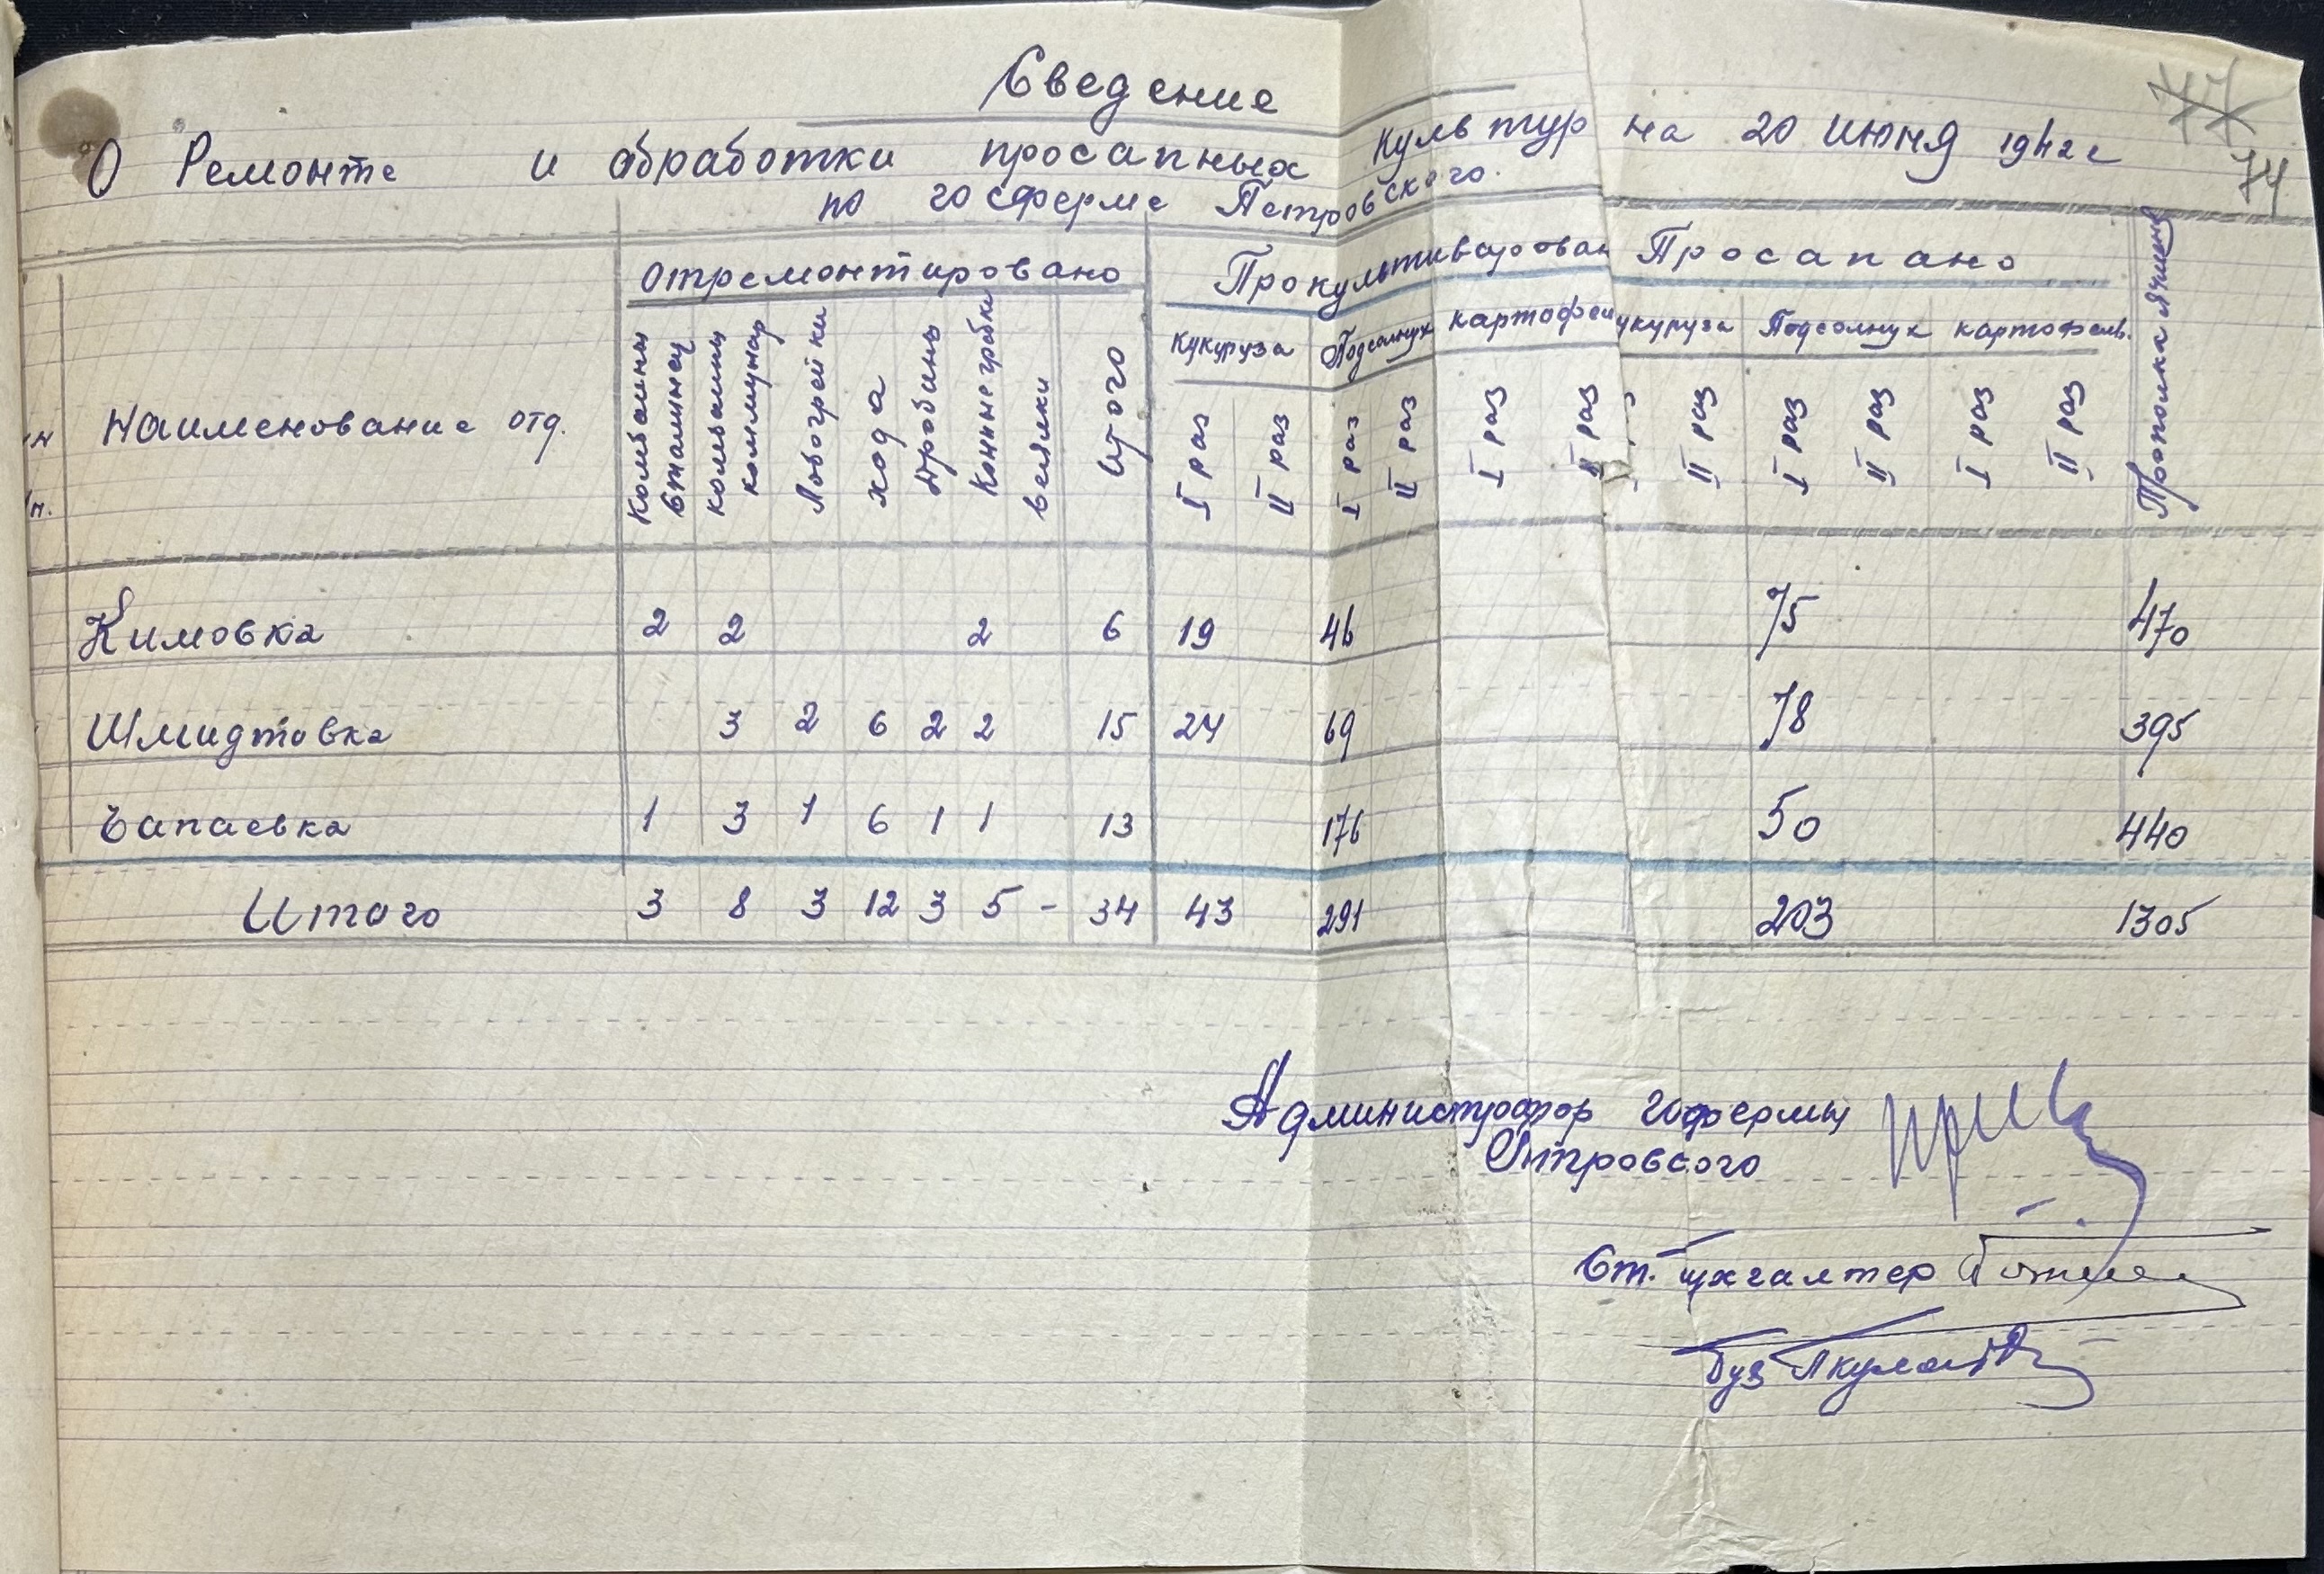 77
74
Сведение
О Ремонте и обработки просапных культур на 20 июня 1942 г
по госферме Петровского.
Наименование отд. Отремонтировано Прокультивирован Просапано Прополка ячменя
кукуруза Подсолнух картофель укуруза Подсолнух картофель.
Комбайны Сталинец комбайны коммунар Лобогрейки хода Дробинь Конные грабли веялки Итого I раз II раз I раз II раз I раз II раз II раз I раз II раз I раз II раз
Кимовка 2 2 2 6 19 46 75 470
Шмидтовка 3 2 6 2 2 15 24 69 78 395
Чапаевка 1 3 1 6 1 1 13 176 50 440
Итого 3 8 3 12 3 5 - 34 43 291 203 1305
Администратор госфермы
Петровсого
Ст. Бухгалтер